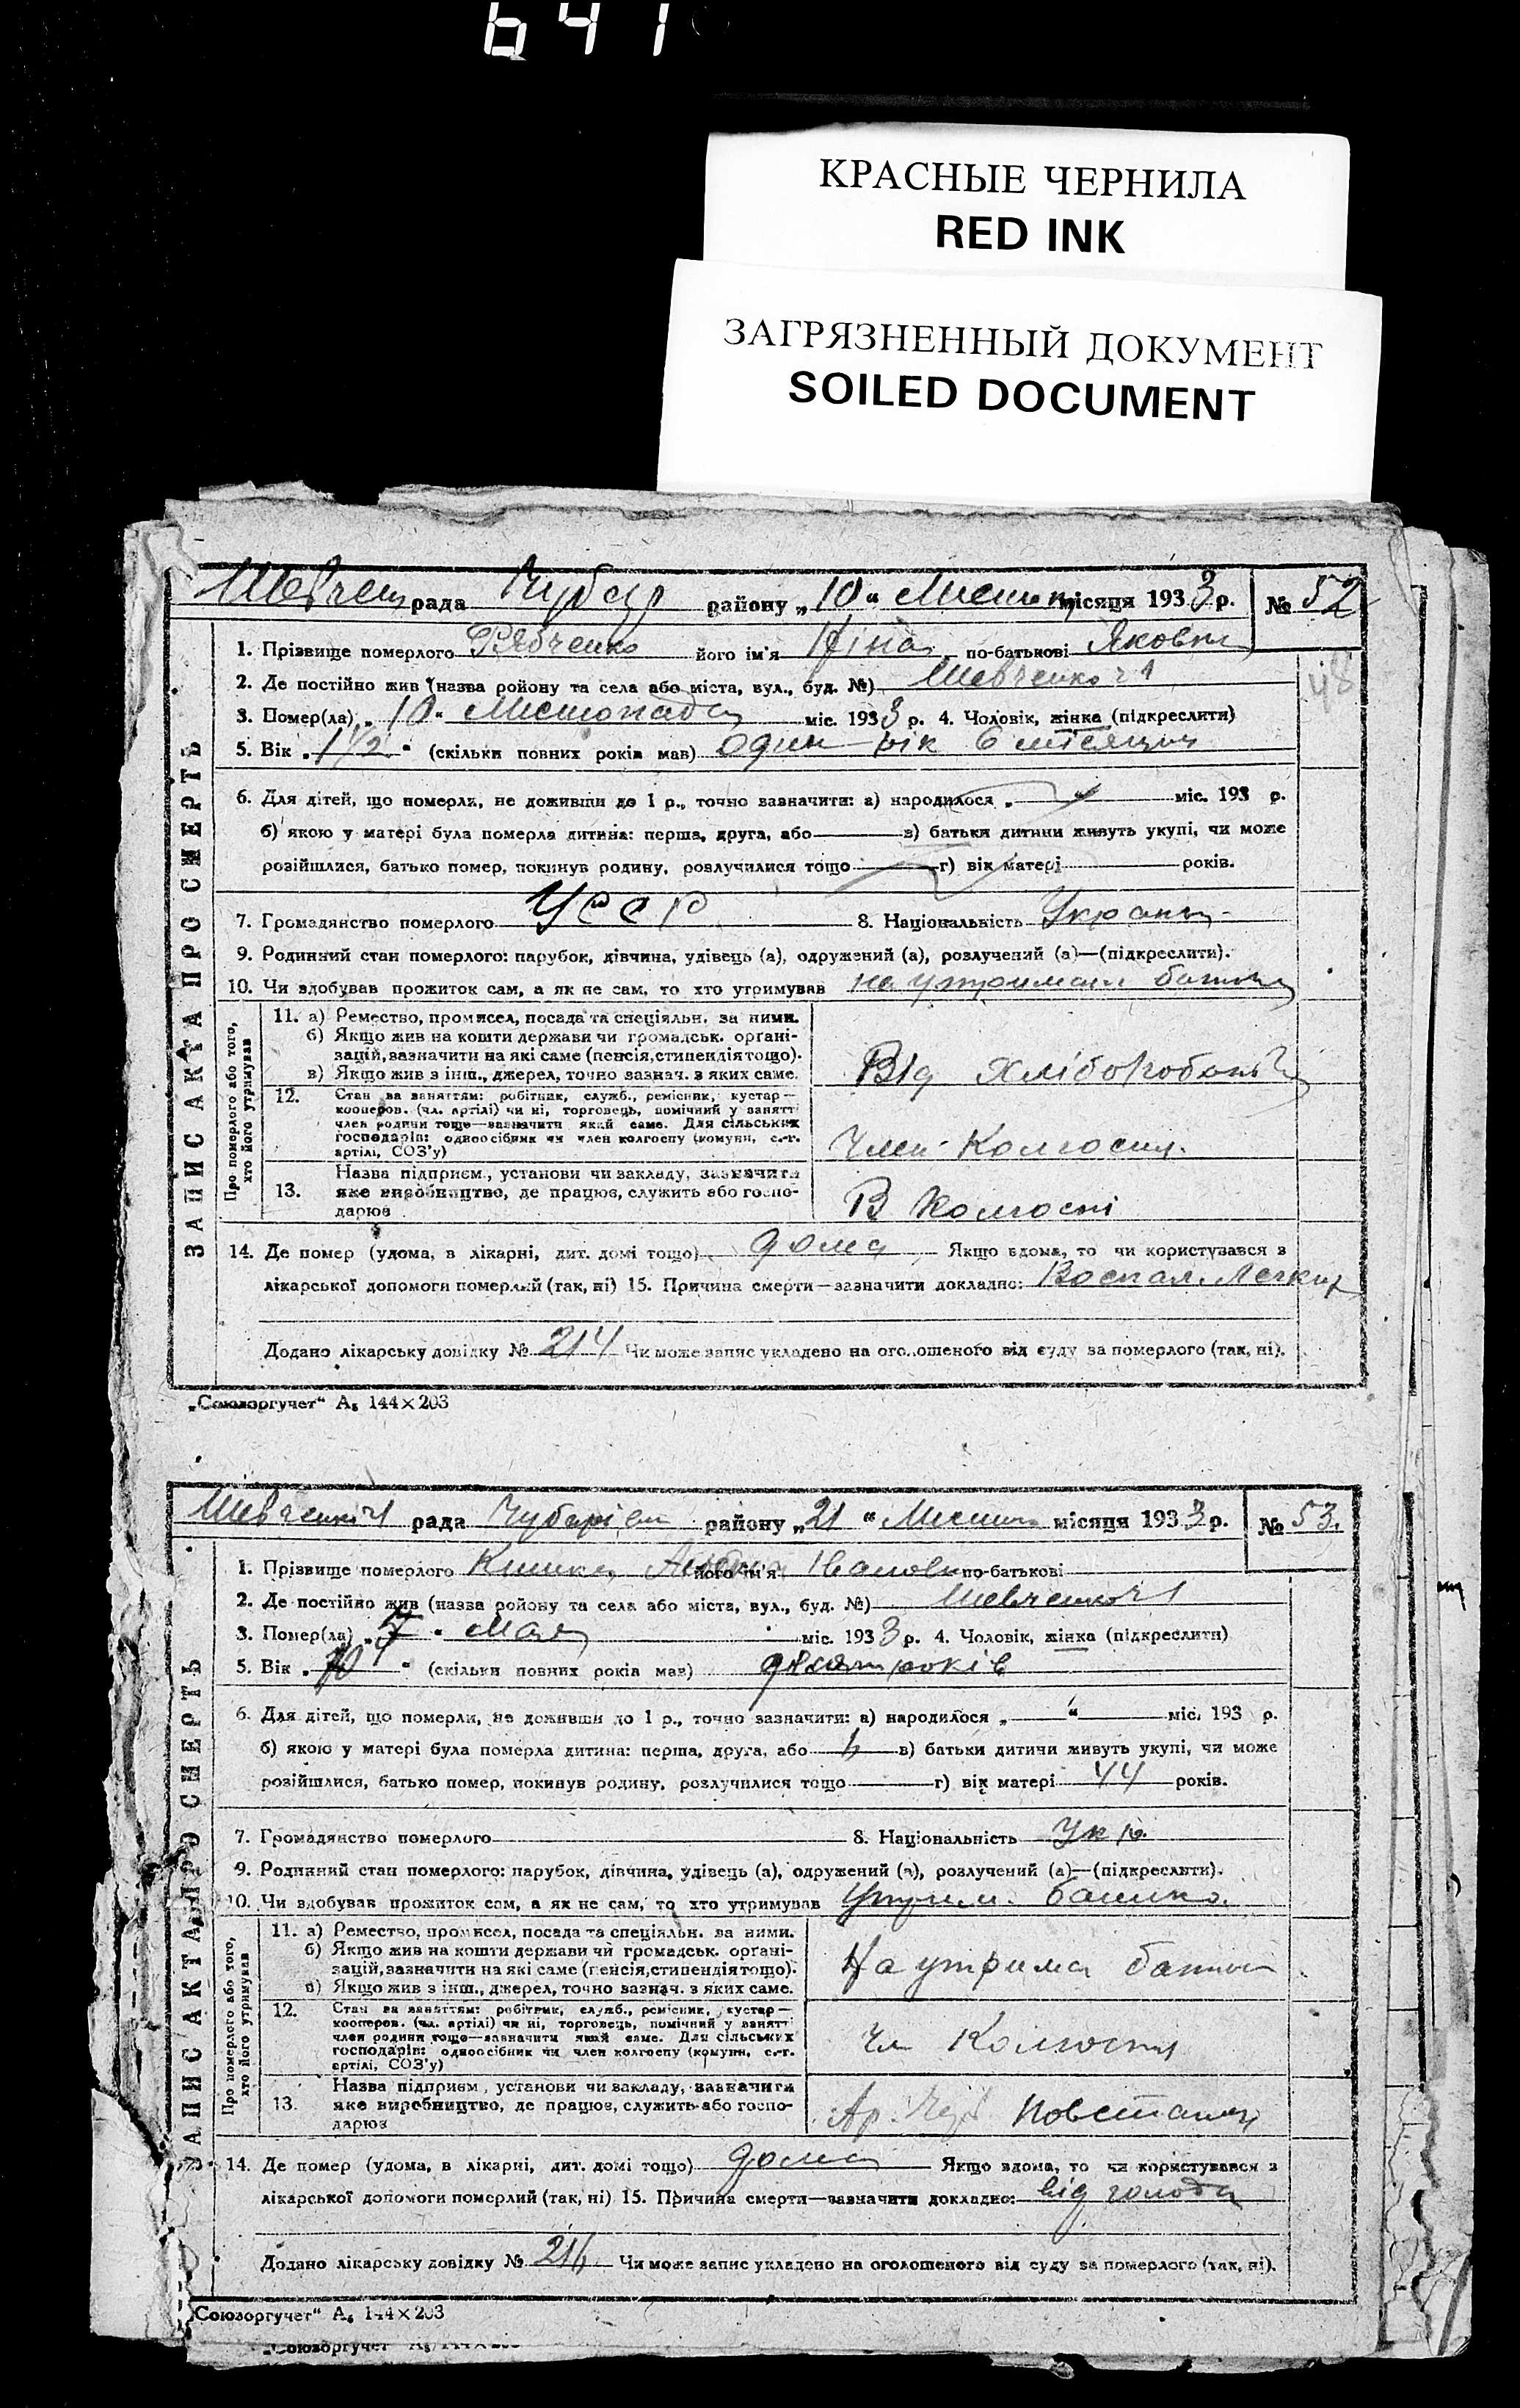 641
КРАСНЫЕ ЧЕРНИЛА
RED INK
ЗАГРЯЗНЕННЫЙ ДОКУМЕНТ
SOILED DOCUMENT
рада Чубар району „10“ місяця 1933 р. № 52
1. Прізвище померлого Рябченко його ім'я Ніна по-батькові Яковл
48
2. Де постійно жив (назва ройону та села або міста, вул., буд. №) Шевченко
3. Помер(ла) „10“ Листопада міс. 1933 р. 4. Чоловік, жінка (підкреслити)
5. Вік „1 1/2“ (скільки повних років мав) один рік 6 місяців
6. Для дітей, що померли, не доживши до 1 р., точно зазначити: а) народилося „ “ міс. 193 р.
б) якою у матері була померла дитина: перша, друга, або в) батьки дитини живуть укупі, чи може
розійшлися, батько помер, покинув родину, розлучилися тощо г) вік матері років.
7. Громадянство померлого УССР 8. Національність
9. Родинний стан померлого: парубок, дівчина, удівець (а), одружений (а), розлучений (а)—(підкреслити).
10. Чи здобував прожиток сам, а як не сам, то хто утримував на утриман
ЗАПИС АКТА ПРО СМЕРТЬ
Про померлого або того, хто його утримував
11. а) Ремество, промисел, посада та спеціяльн. за ними.
б) Якщо жив на кошти держави чи громадськ. органі-
зацій, зазначити на які саме (пенсія, стипендія тощо).
в) Якщо жив з інш., джерел, точно зазнач. з яких саме.
Від
12. Стан за заняттям: робітник, служб., ремісник, кустар—
кооперов. (чл. артілі) чи ні, торговець, помічний у занятті
член родини тощо—зазначити який саме. Для сільських
господарів: одноосібник чи член колгоспу (комуни, с.-г.
артілі, СОЗ'у)
Член Колгоспу.
13. Назва підприєм., установи чи закладу, зазначити
яке виробництво, де працює, служить або госпо-
дарює
В Колгоспі
14. Де помер (удома, в лікарні, дит. домі тощо) дома Якщо вдома, то чи користувався з
лікарської допомоги померлий (так, ні) 15. Причина смерти—зазначити докладно: Воспал. Легких
Додано лікарську довідку № 214 Чи може запис укладено на оголошеного від суду за померлого (так, ні).
„Союзоргучет“ А₅ 144×203
рада району „21“ місяця 1933 р. № 53.
1. Прізвище померлого його ім'я Івановн по-батькові
2. Де постійно жив (назва ройону та села або міста, вул., буд. №) Шевченко
3. Помер(ла) „7“ Мая міс. 1933 р. 4. Чоловік, жінка (підкреслити)
5. Вік (скільки повних років мав) років
6. Для дітей, що померли, не доживши до 1 р., точно зазначити: а) народилося „ “ міс. 193 р.
б) якою у матері була померла дитина: перша, друга, або в) батьки дитини живуть укупі, чи може
розійшлися, батько помер, покинув родину, розлучилися тощо г) вік матері 44 років.
7. Громадянство померлого 8. Національність Укр.
9. Родинний стан померлого: парубок, дівчина, удівець (а), одружений (а), розлучений (а)—(підкреслити).
10. Чи здобував прожиток сам, а як не сам, то хто утримував Утрим. батько.
ЗАПИС АКТА ПРО СМЕРТЬ
Про померлого або того, хто його утримував
11. а) Ремество, промисел, посада та спеціяльн. за ними.
б) Якщо жив на кошти держави чи громадськ. органі-
зацій, зазначити на які саме (пенсія, стипендія тощо).
в) Якщо жив з інш., джерел, точно зазнач. з яких саме.
На утрима
12. Стан за заняттям: робітник, служб., ремісник, кустар—
кооперов. (чл. артілі) чи ні, торговець, помічний у занятті
член родини тощо—зазначити який саме. Для сільських
господарів: одноосібник чи член колгоспу (комуни, с.-г.
артілі, СОЗ'у)
Чл Колгоспу
13. Назва підприєм., установи чи закладу, зазначити
яке виробництво, де працює, служить або госпо-
дарює
Ар.
14. Де помер (удома, в лікарні, дит. домі тощо) дома Якщо вдома, то чи користувався з
лікарської допомоги померлий (так, ні) 15. Причина смерти—зазначити докладно: від голода
Додано лікарську довідку № Чи може запис укладено на оголошеного від суду за померлого (так, ні).
Союзоргучет“ А₅ 144×203
„Союзоргучет“